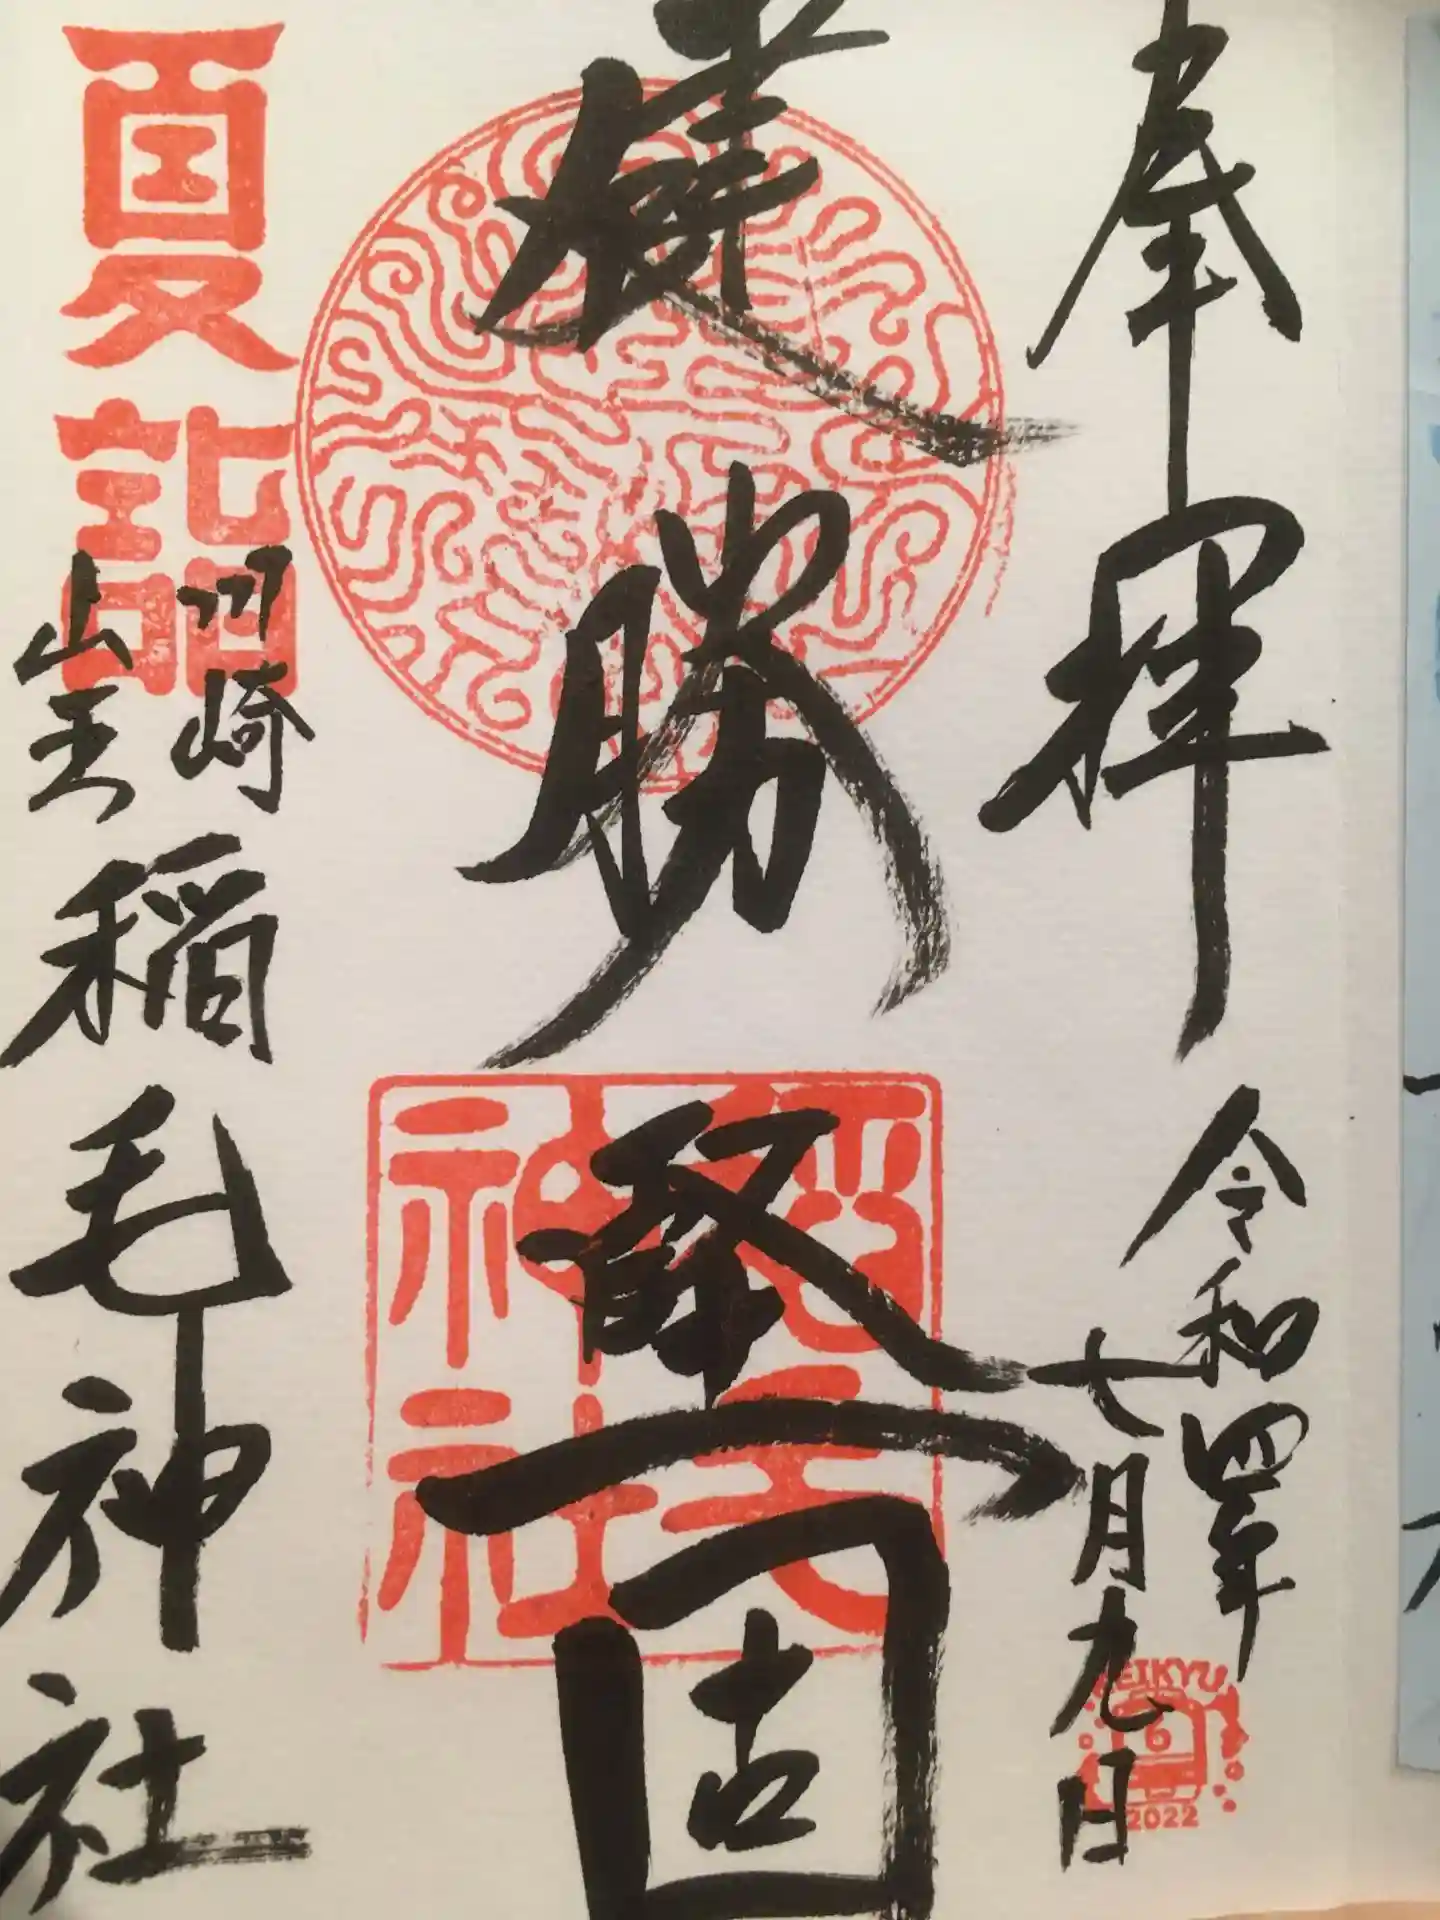 奉拝
令和四年
七月九日
健勝堅固
夏詣
川崎
山王
稲毛神社
神社
KEIKYU
6
2022